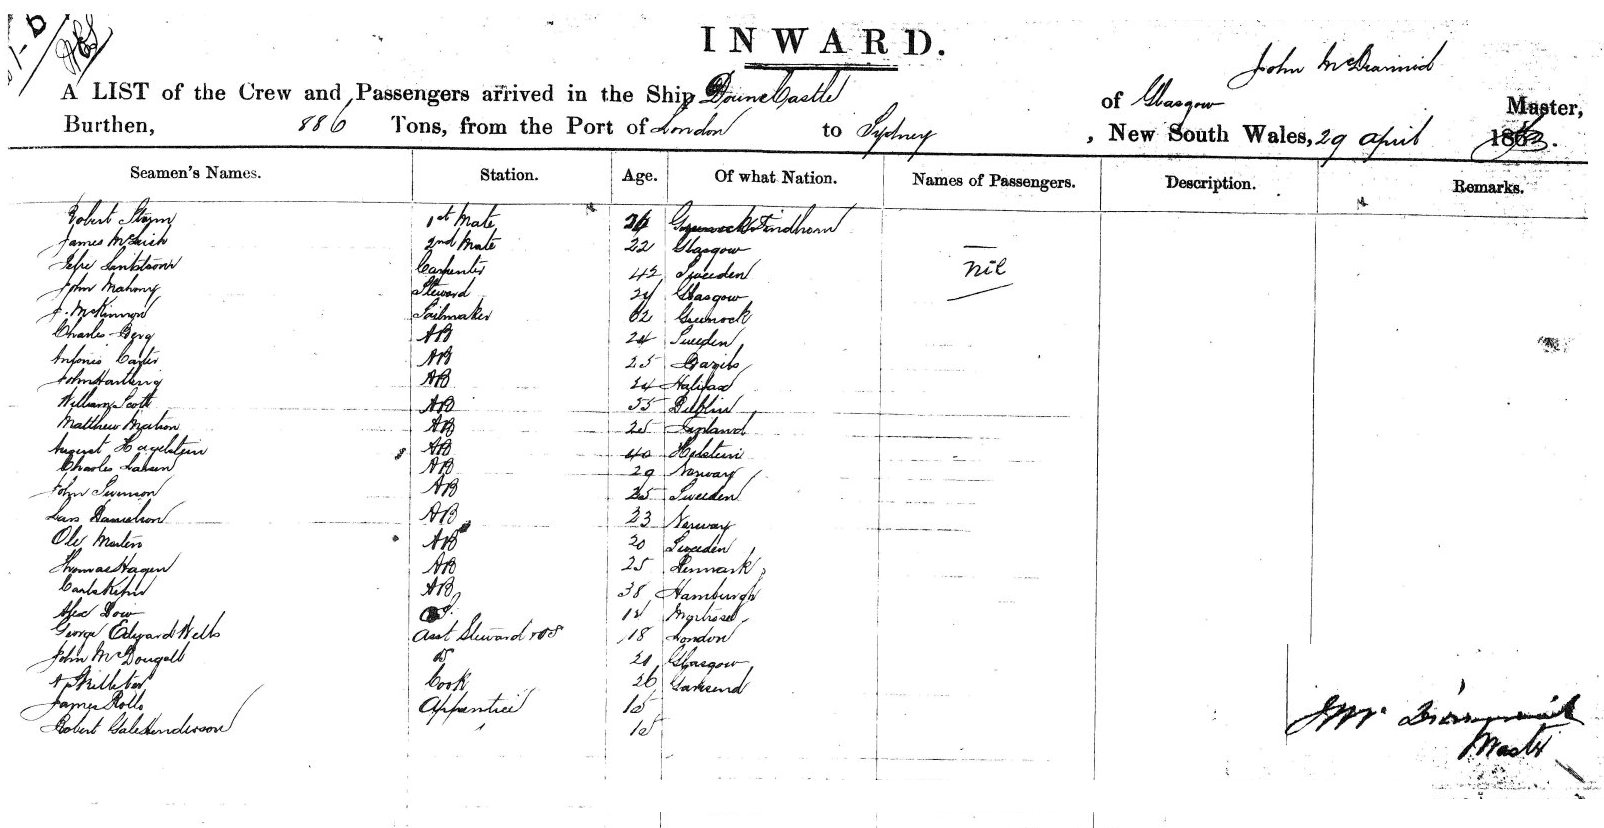 INWARD.
John McDiarmid
A LIST of the Crew and Passengers arrived in the Ship Doune Castle of Glasgow Master,
Burthen, 886 Tons, from the Port of London to Sydney, New South Wales, 29 April 186
Seamen's Names. Station. Age. Of what Nation. Names of Passengers. Description. Remarks.
Robert 1st Mate Findhorn
James 2nd Mate 22 Glasgow
Carpenter 42 Sweeden nil
John Mahony Steward Glasgow
J. McKinnon Sailmaker 62 Greenock
Charles Berg AB 24 Sweeden
Antonio AB 25
John AB 24 Halifax
William Scott AB 55 Dublin
Matthew AB 25
August Hagelstein AB 40 Holstein
Charles Larsen AB 29 Norway
John Swenson AB 25 Sweeden
Lars Danielson AB 23 Norway
Ole Martin AB 20 Sweeden
Thomas Hagen AB 25 Denmark
AB 38 Hamburgh
Alex Dow Montrose
George Edward Wells Asst Steward 18 London
John McDougall Glasgow
Cook 26
James Rollo Apprentice 15
Robert Gale Henderson 15
Master